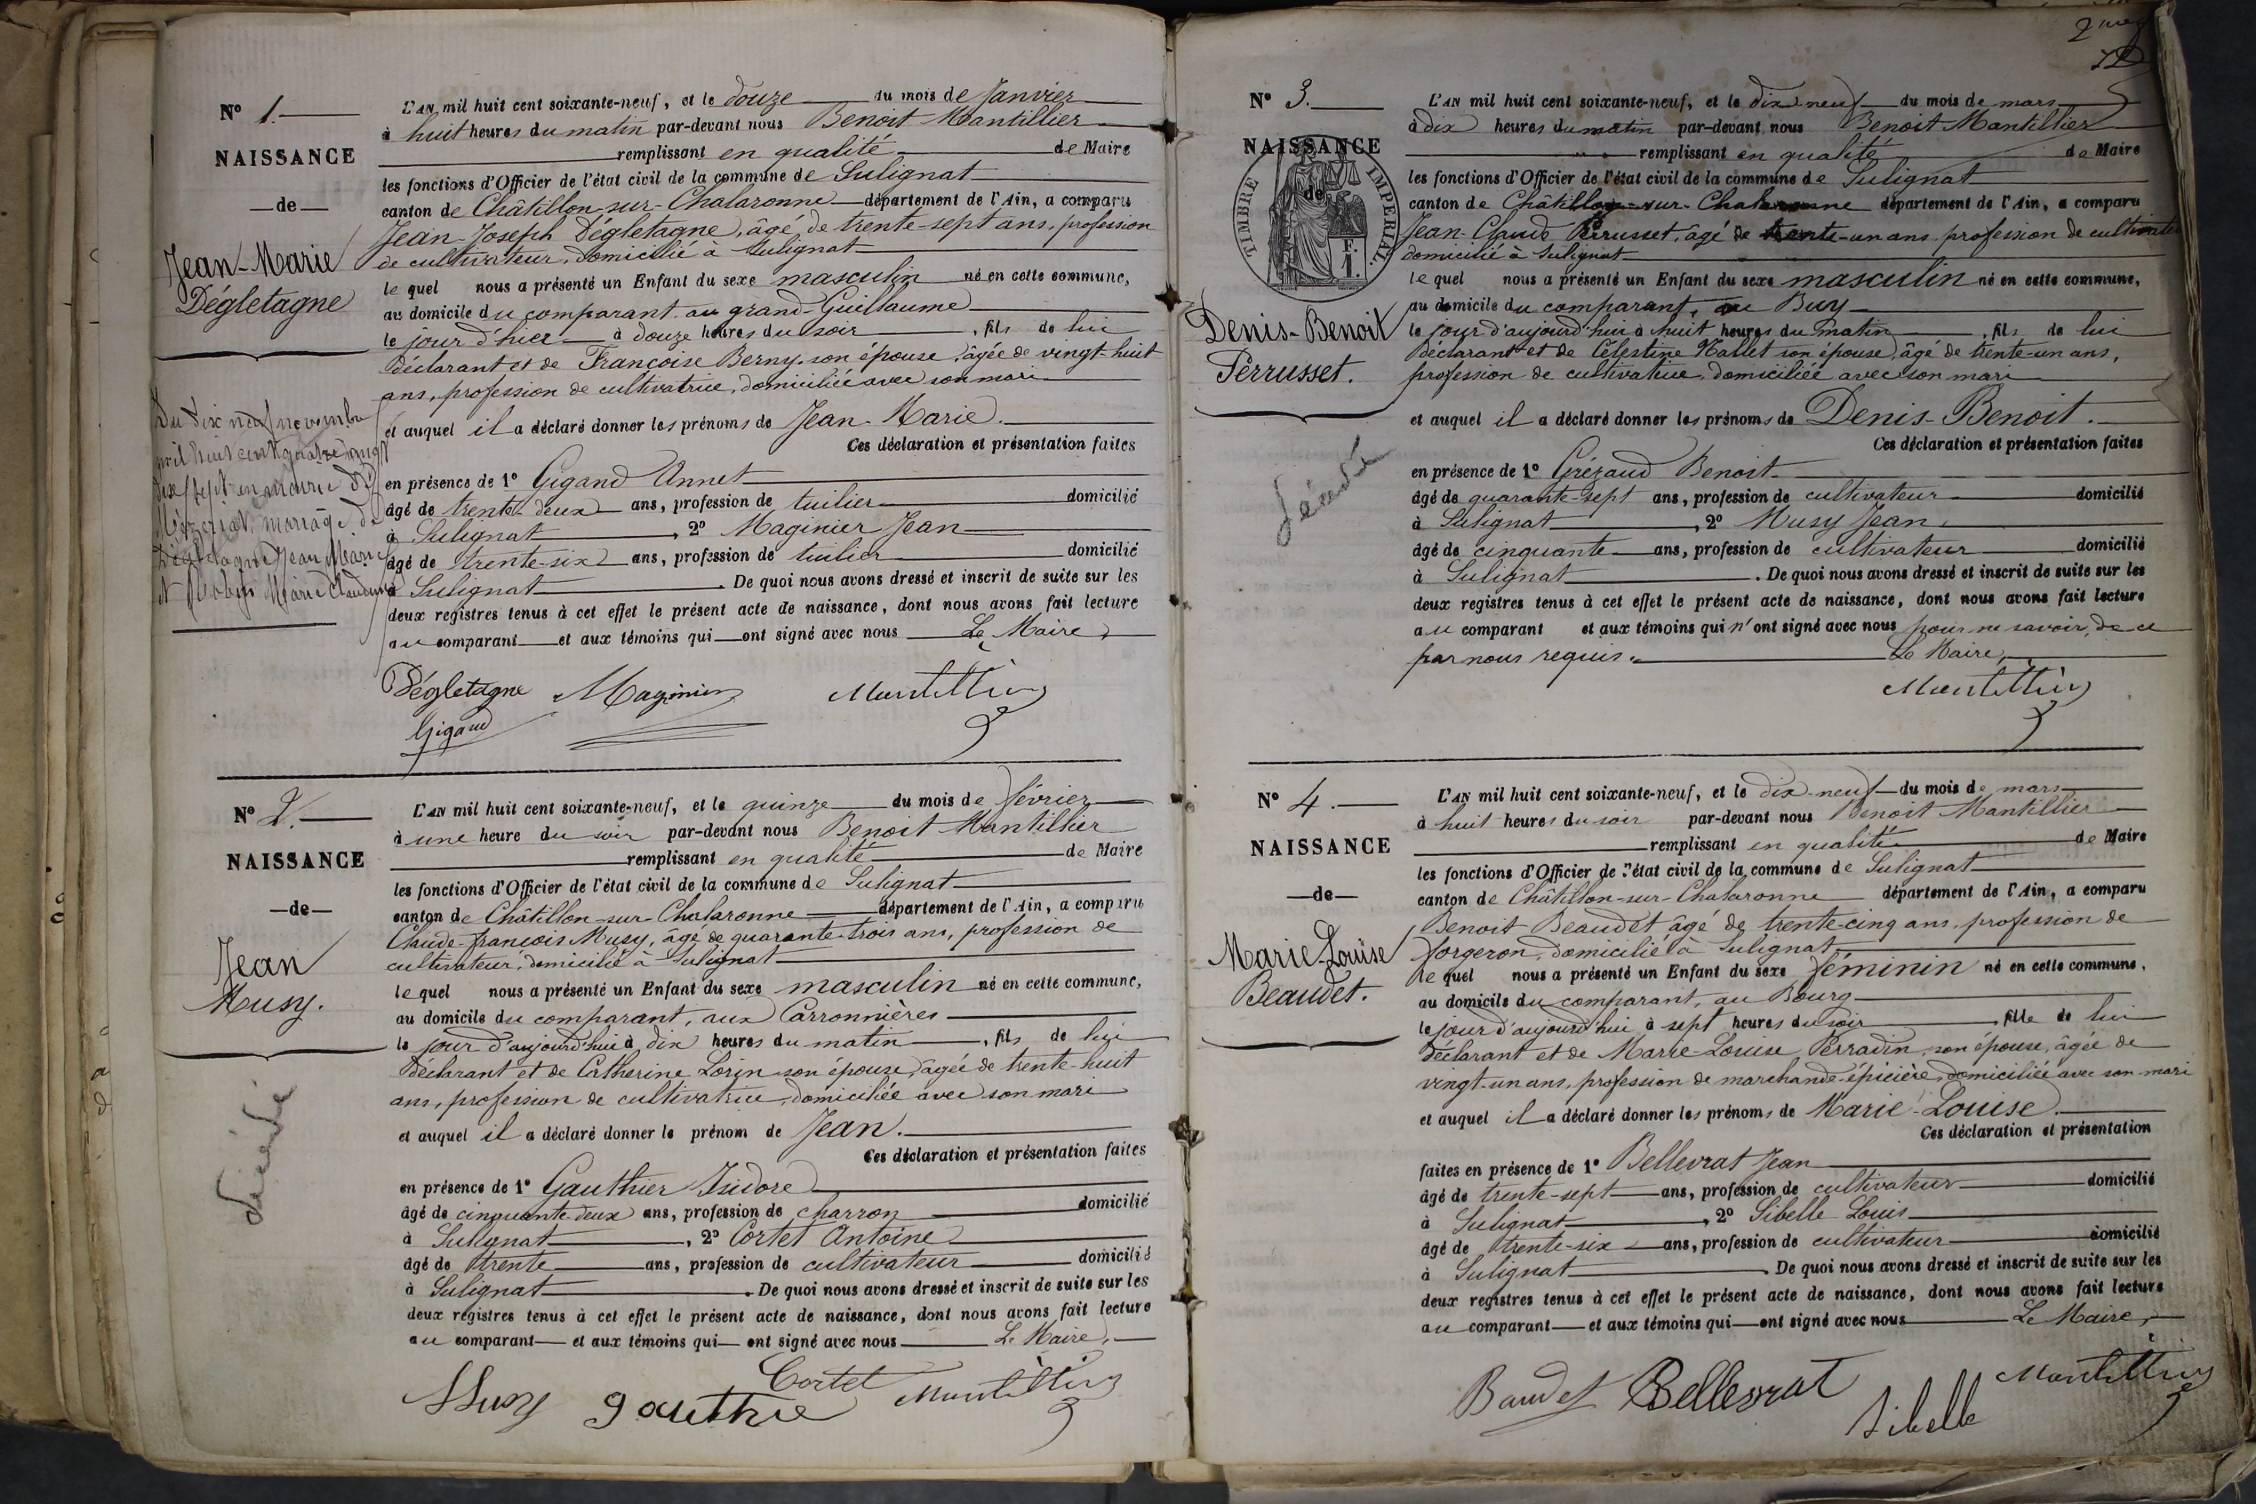 N° 1.
NAISSANCE
de
Jean-Marie
Dégletagne
Du dix neuf novembre
mil huit cent quatre vingt
dix sept en mairie de
Mézériat, mariage de
Dégletagne Jean Marie
et Robin Marie Claudine
L'AN mil huit cent soixante-neuf, et le douze du mois de Janvier
à huit heures du matin par-devant nous Benoit Mantillier
remplissant en qualité de Maire
les fonctions d'Officier de l'état civil de la commune de Sulignat
canton de Châtillon-sur-Chalaronne département de l'Ain, a comparu
Jean-Joseph Dégletagne, âgé de trente-sept ans, profession
de cultivateur, domicilié à Sulignat
le quel nous a présenté un Enfant du sexe masculin né en cette commune,
au domicile du comparant au grand-Guillaume
le jour d'hier à douze heures du soir, fils de lui
déclarant et de Françoise Berny son épouse, âgée de vingt-huit
ans, profession de cultivatrice, domiciliée avec son mari
et auquel il a déclaré donner les prénoms de Jean-Marie.
Ces déclaration et présentation faites
en présence de 1° Gigand Annet
âgé de trente-deux ans, profession de tuilier domicilié
à Sulignat, 2° Maginier Jean
âgé de trente-six ans, profession de tuilier domicilié
à Sulignat. De quoi nous avons dressé et inscrit de suite sur les
deux registres tenus à cet effet le présent acte de naissance, dont nous avons fait lecture
au comparant et aux témoins qui ont signé avec nous Le Maire,
Dégletagne Maginier Mantillier
Gigand
N° 2.
NAISSANCE
de
Jean
Musy.
Décédé
L'AN mil huit cent soixante-neuf, et le quinze du mois de février
à une heure du soir par-devant nous Benoit Mantillier
remplissant en qualité de Maire
les fonctions d'Officier de l'état civil de la commune de Sulignat
canton de Châtillon-sur-Chalaronne département de l'Ain, a comparu
Claude-françois Musy, âgé de quarante-trois ans, profession de
cultivateur, domicilié à Sulignat
le quel nous a présenté un Enfant du sexe masculin né en cette commune,
au domicile du comparant, aux Carronnières
le jour d'aujourd'hui à dix heures du matin, fils de lui
déclarant et de Catherine Lorin son épouse, âgée de trente-huit
ans, profession de cultivatrice, domiciliée avec son mari
et auquel il a déclaré donner le prénom de Jean.
Ces déclaration et présentation faites
en présence de 1° Gauthier Isidore
âgé de cinquante-deux ans, profession de charron domicilié
à Sulignat, 2° Cortet Antoine
âgé de trente ans, profession de cultivateur domicilié
à Sulignat. De quoi nous avons dressé et inscrit de suite sur les
deux registres tenus à cet effet le présent acte de naissance, dont nous avons fait lecture
au comparant et aux témoins qui ont signé avec nous Le Maire,
Musy Gauthie Cortet Mantillier
N° 3.
NAISSANCE
de
TIMBRE IMPERIAL
F.
1.
Denis-Benoit
Perrusset.
Décédé
L'AN mil huit cent soixante-neuf, et le dix-neuf du mois de mars
à dix heures du matin par-devant nous Benoit Mantillier
remplissant en qualité de Maire
les fonctions d'Officier de l'état civil de la commune de Sulignat
canton de Châtillon-sur-Chalaronne département de l'Ain, a comparu
Jean-Claude Perrusset, âgé de trente-un ans, profession de cultivateur
domicilié à Sulignat
le quel nous a présenté un Enfant du sexe masculin né en cette commune,
au domicile du comparant, au Buy
le jour d'aujourd'hui à huit heures du matin, fils de lui
déclarant et de Célestine Nallet son épouse, âgé de trente-un ans,
profession de cultivatrice, domiciliée avec son mari
et auquel il a déclaré donner les prénoms de Denis-Benoit.
Ces déclaration et présentation faites
en présence de 1° Grézaud Benoit
âgé de quarante-sept ans, profession de cultivateur domicilié
à Sulignat, 2° Musy Jean,
âgé de cinquante ans, profession de cultivateur domicilié
à Sulignat. De quoi nous avons dressé et inscrit de suite sur les
deux registres tenus à cet effet le présent acte de naissance, dont nous avons fait lecture
au comparant et aux témoins qui n'ont signé avec nous pour ne savoir, de ce
par nous requis. Le Maire,
Mantillier
N° 4.
NAISSANCE
de
Marie-Louise
Beaudet.
L'AN mil huit cent soixante-neuf, et le dix-neuf du mois de mars
à huit heures du soir par-devant nous Benoit Mantillier
remplissant en qualité de Maire
les fonctions d'Officier de l'état civil de la commune de Sulignat
canton de Châtillon-sur-Chalaronne département de l'Ain, a comparu
Benoit Beaudet âgé de trente-cinq ans, profession de
forgeron, domicilié à Sulignat,
le quel nous a présenté un Enfant du sexe féminin né en cette commune,
au domicile du comparant, au Bourg
le jour d'aujourd'hui à sept heures du soir, fille de lui
déclarant et de Marie-Louise Perradin, son épouse, âgée de
vingt-un ans, profession de marchande-épicière, domiciliée avec son mari
et auquel il a déclaré donner les prénoms de Marie-Louise.
Ces déclaration et présentation
faites en présence de 1° Bellevrat Jean
âgé de trente-sept ans, profession de cultivateur domicilié
à Sulignat, 2° Sibelle Louis
âgé de trente-six ans, profession de cultivateur domicilié
à Sulignat. De quoi nous avons dressé et inscrit de suite sur les
deux registres tenus à cet effet le présent acte de naissance, dont nous avons fait lecture
au comparant et aux témoins qui ont signé avec nous Le Maire,
Baudet Bellevrat Sibelle Mantillier